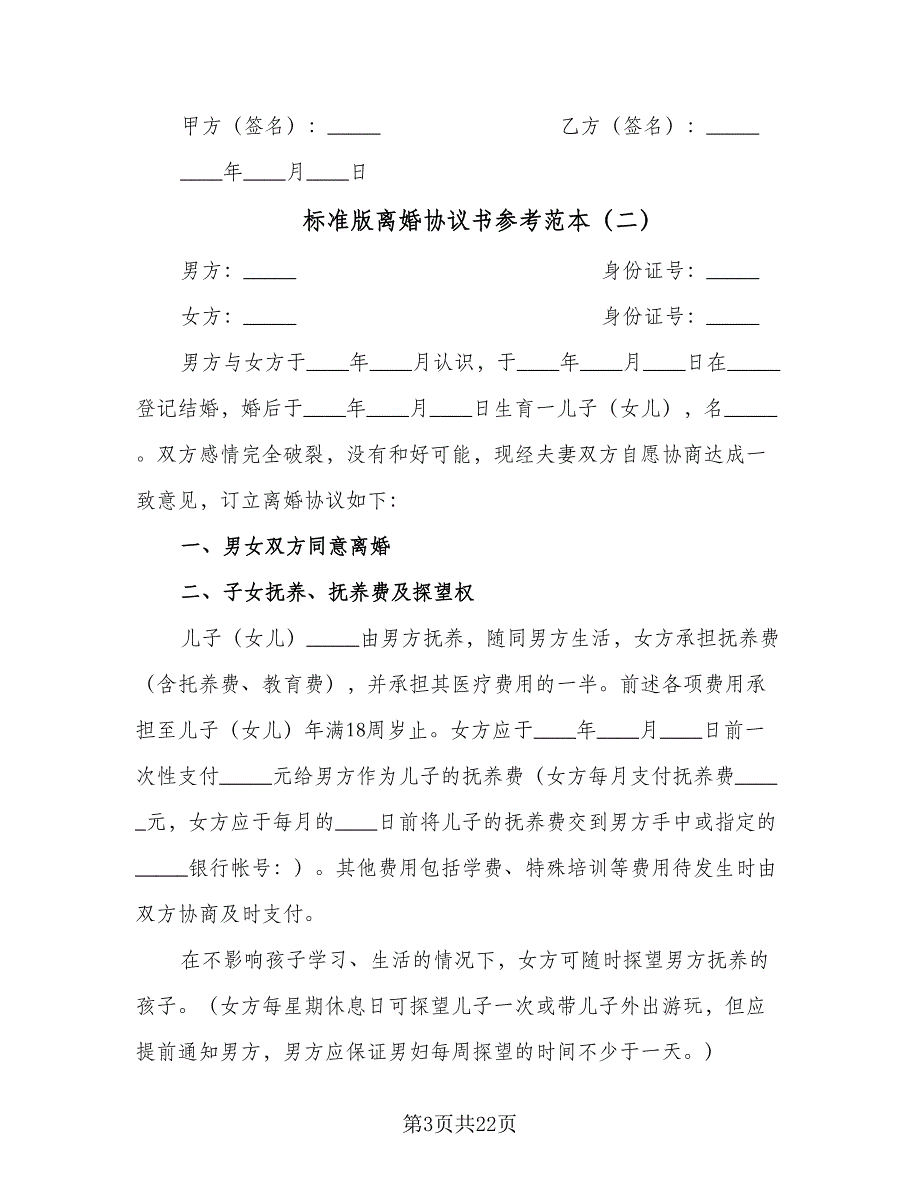 甲方（签名）：_____ 乙方（签名）：_____
____年____月____日
标准版离婚协议书参考范本（二）
男方：_____ 身份证号：_____
女方：_____ 身份证号：_____
男方与女方于____年____月认识，于____年____月____日在_____
登记结婚，婚后于____年____月____日生育一儿子（女儿），名_____
。双方感情完全破裂，没有和好可能，现经夫妻双方自愿协商达成一
致意见，订立离婚协议如下：
一、男女双方同意离婚
二、子女抚养、抚养费及探望权
儿子（女儿）_____由男方抚养，随同男方生活，女方承担抚养费
（含托养费、教育费），并承担其医疗费用的一半。前述各项费用承
担至儿子（女儿）年满18周岁止。女方应于____年____月____日前一
次性支付_____元给男方作为儿子的抚养费（女方每月支付抚养费____
_元，女方应于每月的____日前将儿子的抚养费交到男方手中或指定的
_____银行帐号：）。其他费用包括学费、特殊培训等费用待发生时由
双方协商及时支付。
在不影响孩子学习、生活的情况下，女方可随时探望男方抚养的
孩子。（女方每星期休息日可探望儿子一次或带儿子外出游玩，但应
提前通知男方，男方应保证男妇每周探望的时间不少于一天。）
第3页共22页